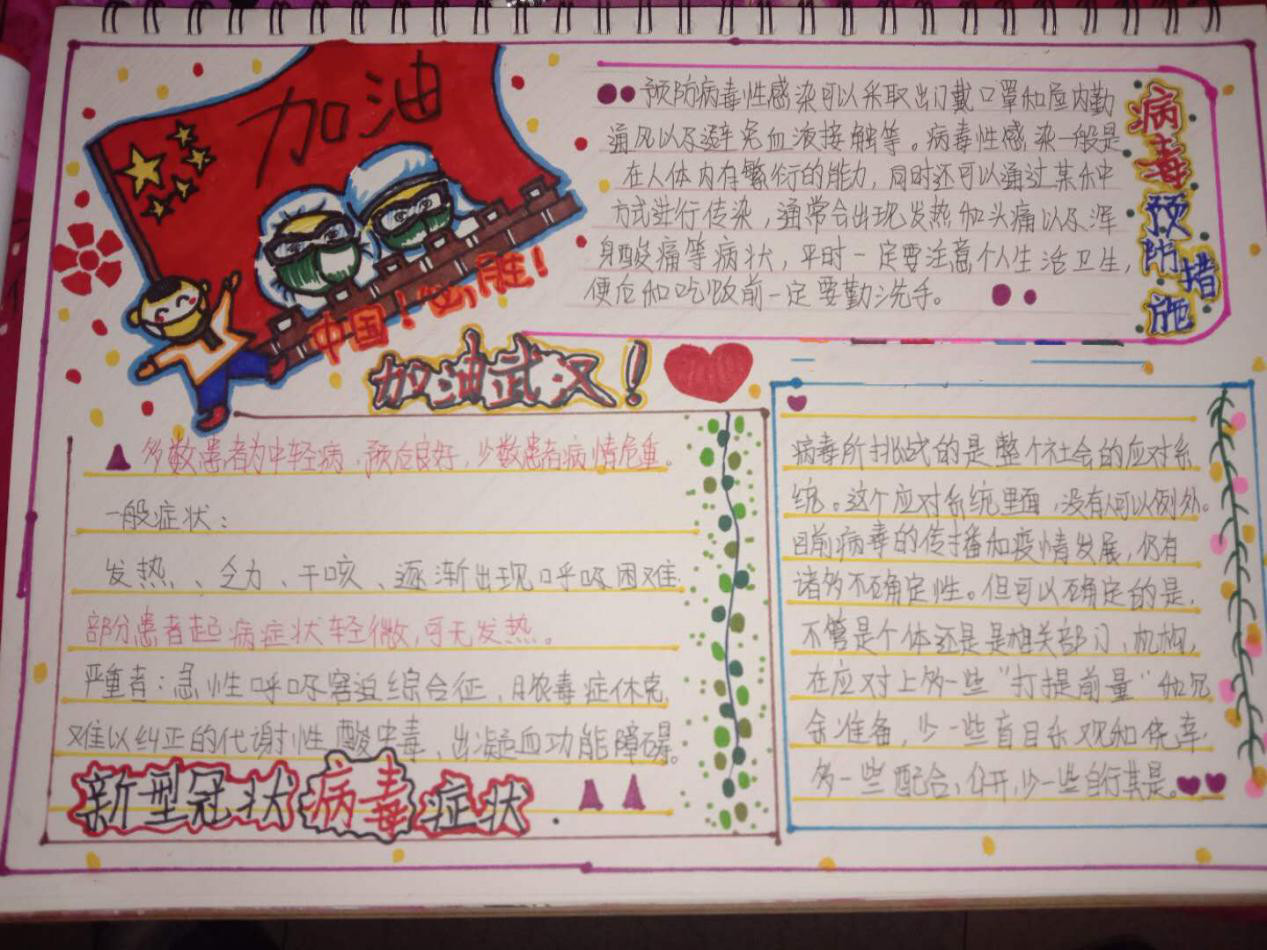 加油
中国！必胜！
加油武汉！
病毒预防措施
预防病毒性感染可以采取出门戴口罩和屋内勤
通风以及避免血液接触等。病毒性感染一般是
在人体内有繁衍的能力，同时还可以通过某示中
方式进行传染，通常会出现发热和头痛以及浑
身酸痛等病状，平时一定要注意个人生活卫生，
便后和吃饭前一定要勤洗手。
多数患者为中轻病，预后良好，少数患者病情危重。
一般症状：
发热、乏力、干咳、逐渐出现呼吸困难
部分患者起病症状轻微，可无发热。
严重者：急性呼吸窘迫综合征、脓毒症休克
难以纠正的代谢性酸中毒、出凝血功能障碍。
新型冠状病毒症状
病毒所挑战的是整个社会的应对系
统。这个应对系统里面，没有人可以例外。
目前病毒的传播和疫情发展，仍有
诸多不确定性。但可以确定的是，
不管是个体还是是相关部门、机构，
在应对上多一些“打提前量”和冗
余准备，少一些盲目乐观和侥幸
多一些配合、公开，少一些自行其是。